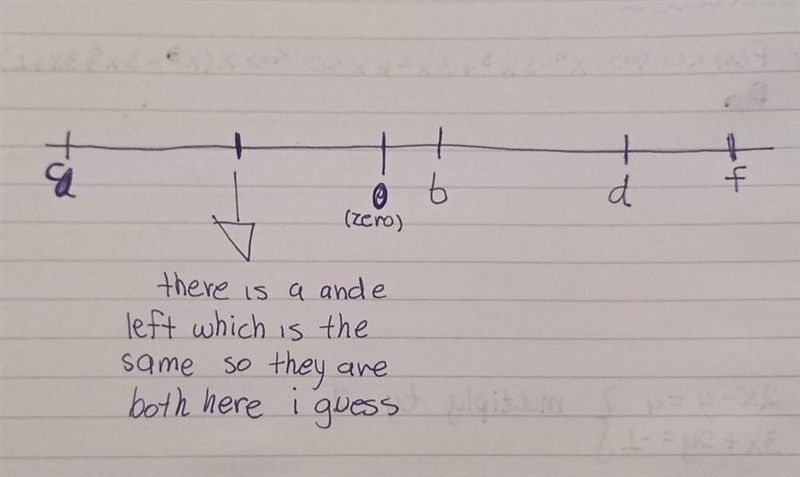 0 b d f
(zero)
there is a ande
left which is the
same so they are
both here i guess